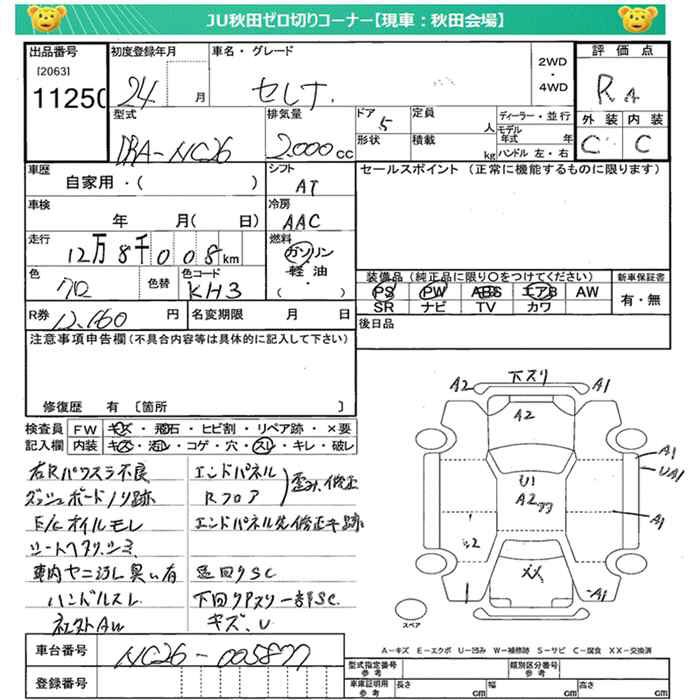 JU秋田ゼロ切りコーナー【現車：秋田会場】
出品番号 初度登録年月 車名・グレード 2WD ・ 4WD 評価点
[2063]
11250 24 月 セレナ RA
型式 排気量 ドア 5 定員 人 ディーラー・並行 外装 内装
DBA-NC26 2000cc 形状 積載 kg モデル年式 年 ハンドル 左・右 C C
車歴 シフト セールスポイント (正常に機能するものに限ります)
自家用・( ) AT
車検 冷房
年 月( 日) AAC
走行 燃料
12万8千008km ガソリン
色 色替 色コード 軽油・ 装備品 (純正品に限り〇をつけてください) 新車保証書
クロ KH3 ( ) PS PW ABS エアB AW 有・無
SR ナビ TV カワ
R券 12,160円 名変期限 月 日 後日品
注意事項申告欄 (不具合内容等は具体的に記入して下さい)
修復歴 有 〔箇所 〕
検査員 FW キズ・飛石・ヒビ割・リペア跡・×要
記入欄 内装 キズ・汚レ・コゲ・穴・スレ・キレ・破レ
右Rパワスラ不良 エンドパネル
ダッシュボードノリ跡 Rフロア 歪み、修正
E/Gオイルモレ エンドパネル先修正キ跡
シートヘタリ、シミ
車内ヤニ汚レ臭い有 下回りSC
ハンドルスレ 下回りアスリ一部SC.
社外AW キズ、U
A2 下スリ A1
A2
A1
U1 UA1
A2
A1
XX
A1
スペア
A-キズ E-エクボ U-凹み W-補修跡 S-サビ C-腐食 XX-交換済
車台番号 NC26-005877 型式指定番号 参考 類別区分番号 参考
登録番号 車庫証明用 参考 長さ cm 幅 cm 高さ cm